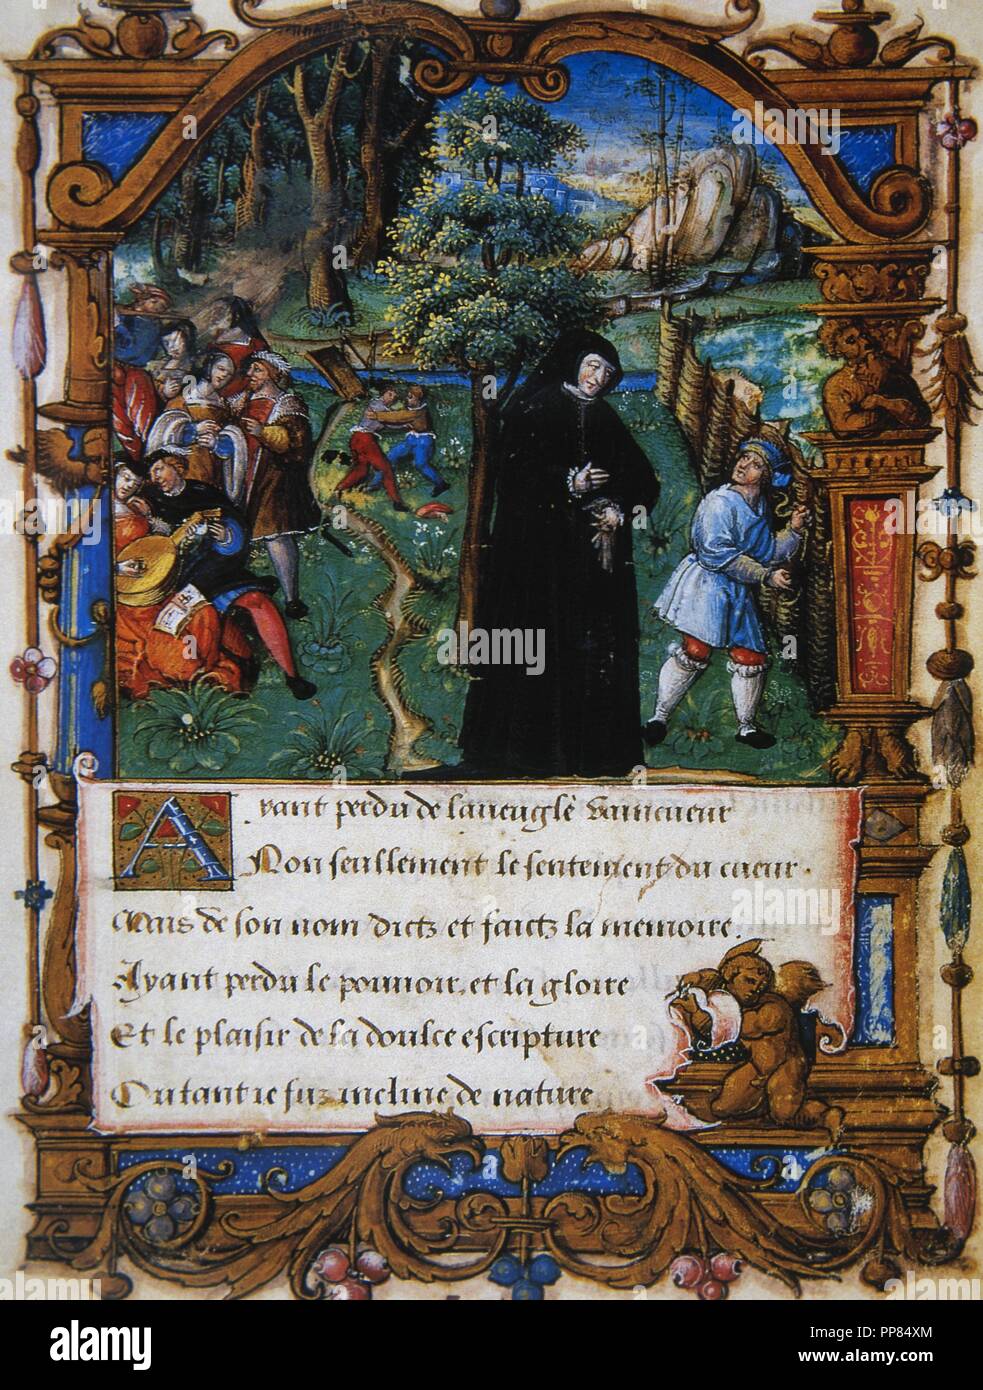 Ayant perdu de laveuglé vaincueur
Non seullement le sentement du cueur.
Mais de son nom dictz et faictz la memoire.
Ayant perdu le pouuoir, et la gloire
Et le plaisir de la doulce escripture
Ou tant ie fuz incline de nature
alamy stock photo
PP84XM
www.alamy.com